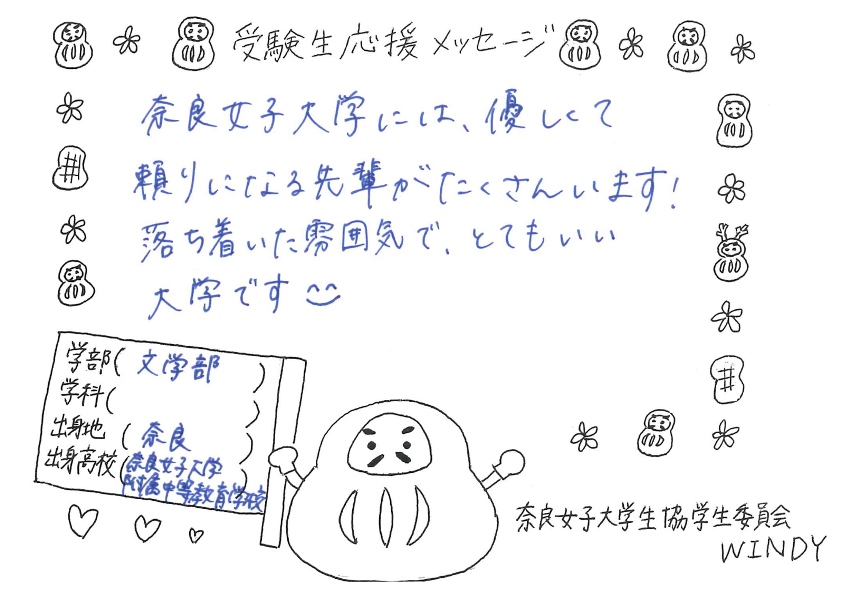 受験生応援メッセージ
奈良女子大学には、優しくて
頼りになる先輩がたくさんいます!
落ち着いた雰囲気で、とてもいい
大学です
学部(文学部)
学科( )
出身地(奈良)
出身高校(奈良女子大学
附属中等教育学校)
奈良女子大学生協学生委員会
WINDY